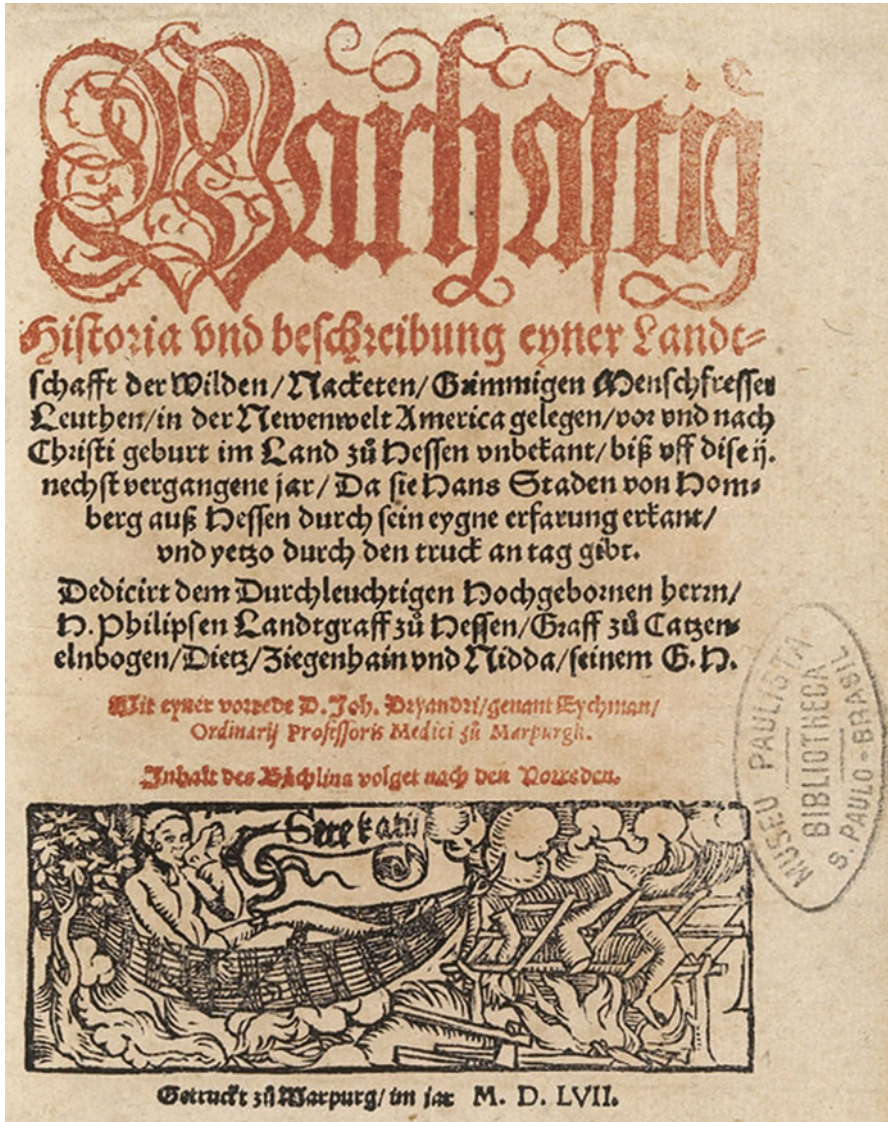 Warhaftig
Historia vnd beschreibung eyner Landt-
schafft der Wilden/Nacketen/Grimmigen Menschfresser
Leuthen/in der Newenwelt America gelegen/vor vnd nach
Christi geburt im Land zů Hessen vnbekant/biß vff dise ij.
nechst vergangene jar/Da sie Hans Staden von Hom-
berg auß Hessen durch sein eygne erfarung erkant/
vnd yetzo durch den truck an tag gibt.
Dedicirt dem Durchleuchtigen Hochgebornen herrn/
H. Philipsen Landtgraff zů Hessen/Graff zů Catzen-
elnbogen/Dietz/Ziegenhain vnd Nidda/seinem G.H.
Mit eyner vorrede D. Joh. Dryandri/genant Eychman/
Ordinarij Professoris Medici zů Marpurgk.
Inhalt des Bůchlins volget nach den Vorreden.
Getruckt zů Marpurg/im jar M. D. LVII.
MUSEU PAULISTA
BIBLIOTHECA
S. PAULO-BRASIL